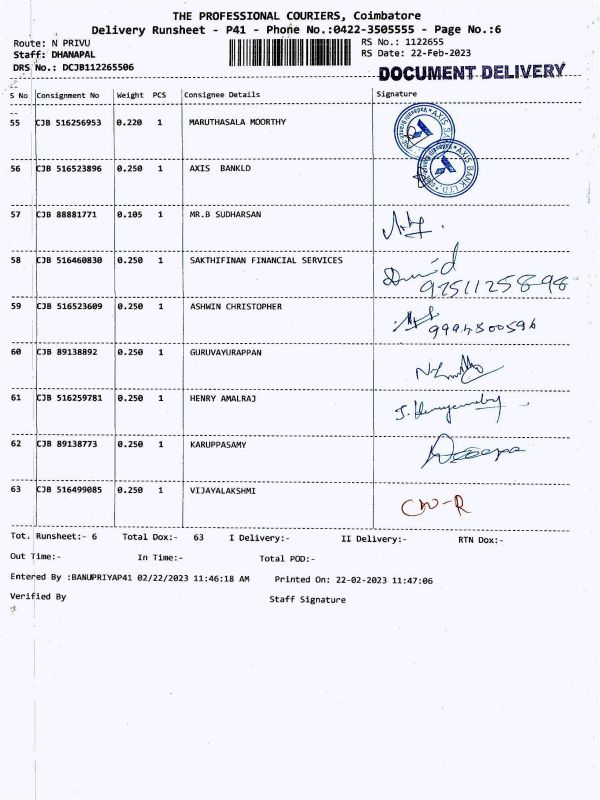 THE PROFESSIONAL COURIERS, Coimbatore
Delivery Runsheet - P41 - Phone No.:0422-3505555 - Page No.:6
Route: N PRIVU RS No.: 1122655
Staff: DHANAPAL RS Date: 22-Feb-2023
DRS No.: DCJB112265506 DOCUMENT DELIVERY
S No Consignment No Weight PCS Consignee Details Signature
55 CJB 516256953 0.220 1 MARUTHASALA MOORTHY
56 CJB 516523896 0.250 1 AXIS BANKLD
AXIS BANK LTD
57 CJB 88881771 0.105 1 MR.B SUDHARSAN
58 CJB 516460830 0.250 1 SAKTHIFINAN FINANCIAL SERVICES
9251125898
59 CJB 516523609 0.250 1 ASHWIN CHRISTOPHER
9994800596
60 CJB 89138892 0.250 1 GURUVAYURAPPAN
61 CJB 516259781 0.250 1 HENRY AMALRAJ
62 CJB 89138773 0.250 1 KARUPPASAMY
63 CJB 516499085 0.250 1 VIJAYALAKSHMI
Tot. Runsheet:- 6 Total Dox:- 63 I Delivery:- II Delivery:- RTN Dox:-
Out Time:- In Time:- Total POD:-
Entered By :BANUPRIYAP41 02/22/2023 11:46:18 AM Printed On: 22-02-2023 11:47:06
Verified By Staff Signature